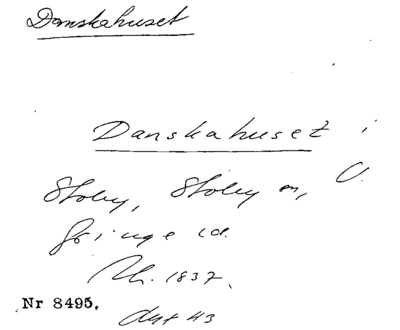 Danskahuset
Danskahuset i
Stoby, Stoby sn, V.
Göinge hd.
Nr 8495.